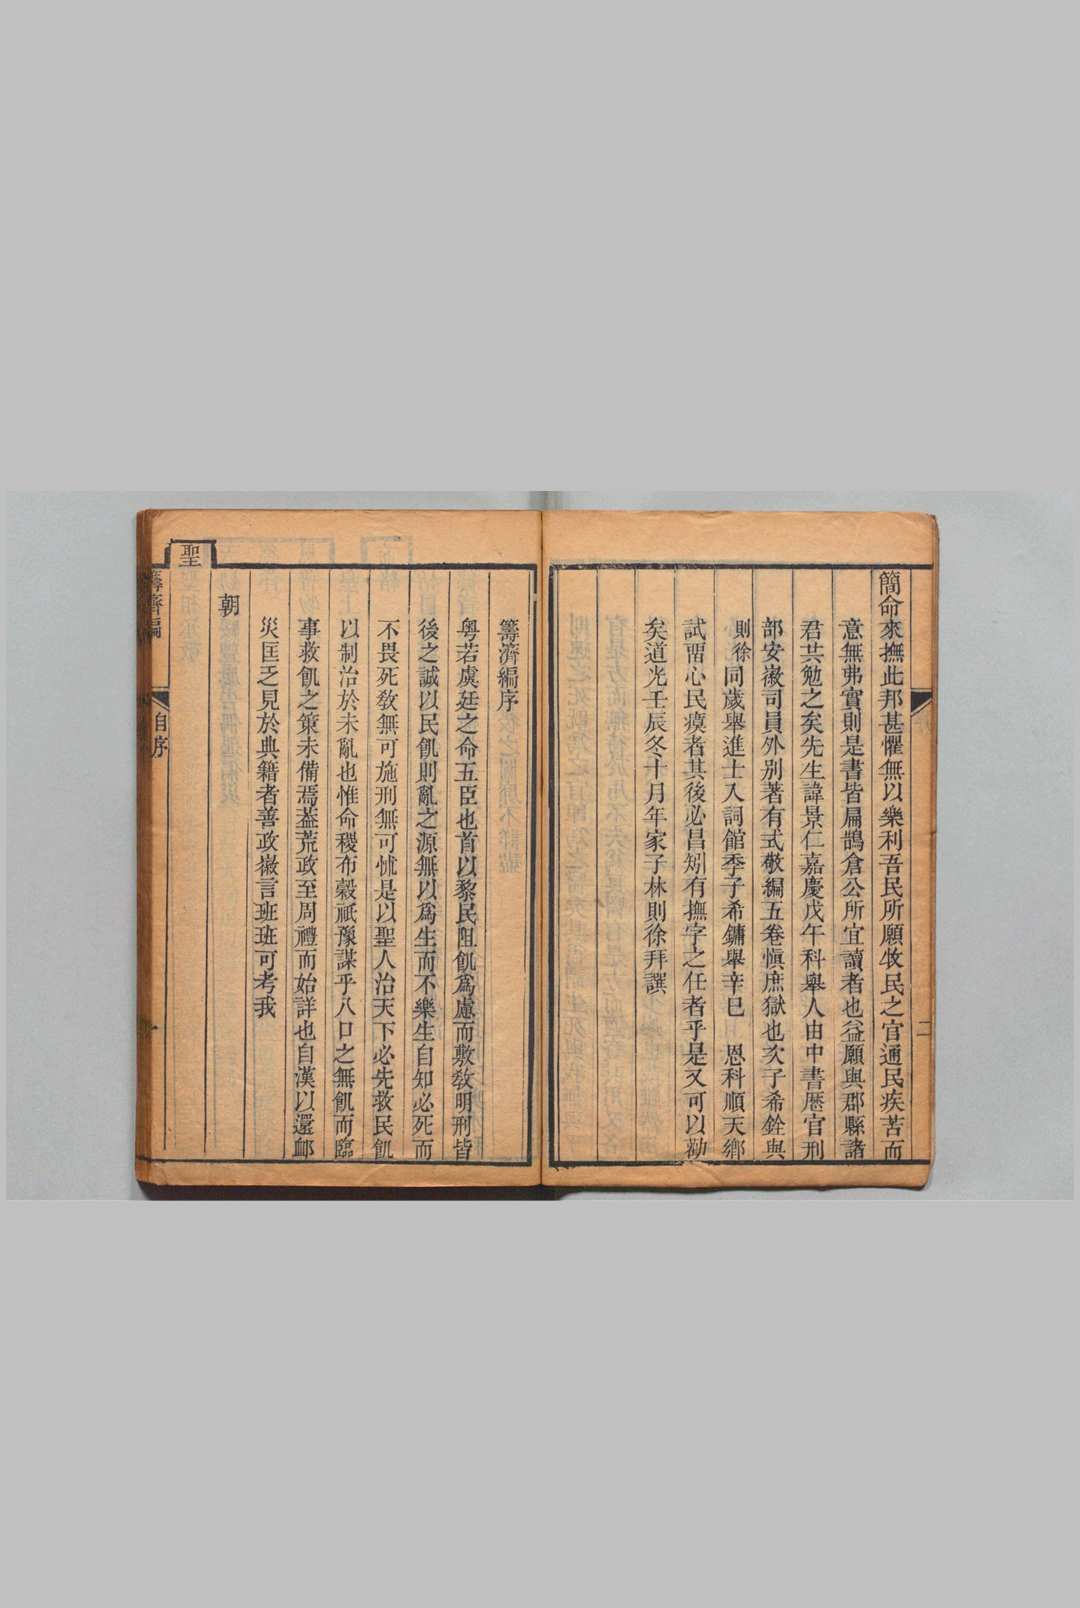 簡命來撫此邦甚懼無以樂利吾民所願牧民之官通民疾苦而
意無弗實則是書皆扁鵲倉公所宜讀者也益願與郡縣諸
君共勉之矣先生諱景仁嘉慶戊午科舉人由中書歷官刑
部安徽司員外别著有式敬編五卷愼庶獄也次子希銓與
則徐同歲舉進士入詞館季子希鏞舉辛巳 恩科順天鄉
試畱心民瘼者其後必昌矧有撫字之任者乎是又可以勸
矣道光壬辰冬十月年家子林則徐拜譔
二
籌濟編序
粤若虞廷之命五臣也首以黎民阻飢爲慮而敷敎明刑皆
後之誠以民飢則亂之源無以爲生而不樂生自知必死而
不畏死敎無可施刑無可怵是以聖人治天下必先救民飢
以制治於未亂也惟命稷布穀祗豫謀乎八口之無飢而臨
事救飢之策未備焉葢荒政至周禮而始詳也自漢以還邮
災匡乏見於典籍者善政徽言班班可考我
朝
聖
籌濟編
自序